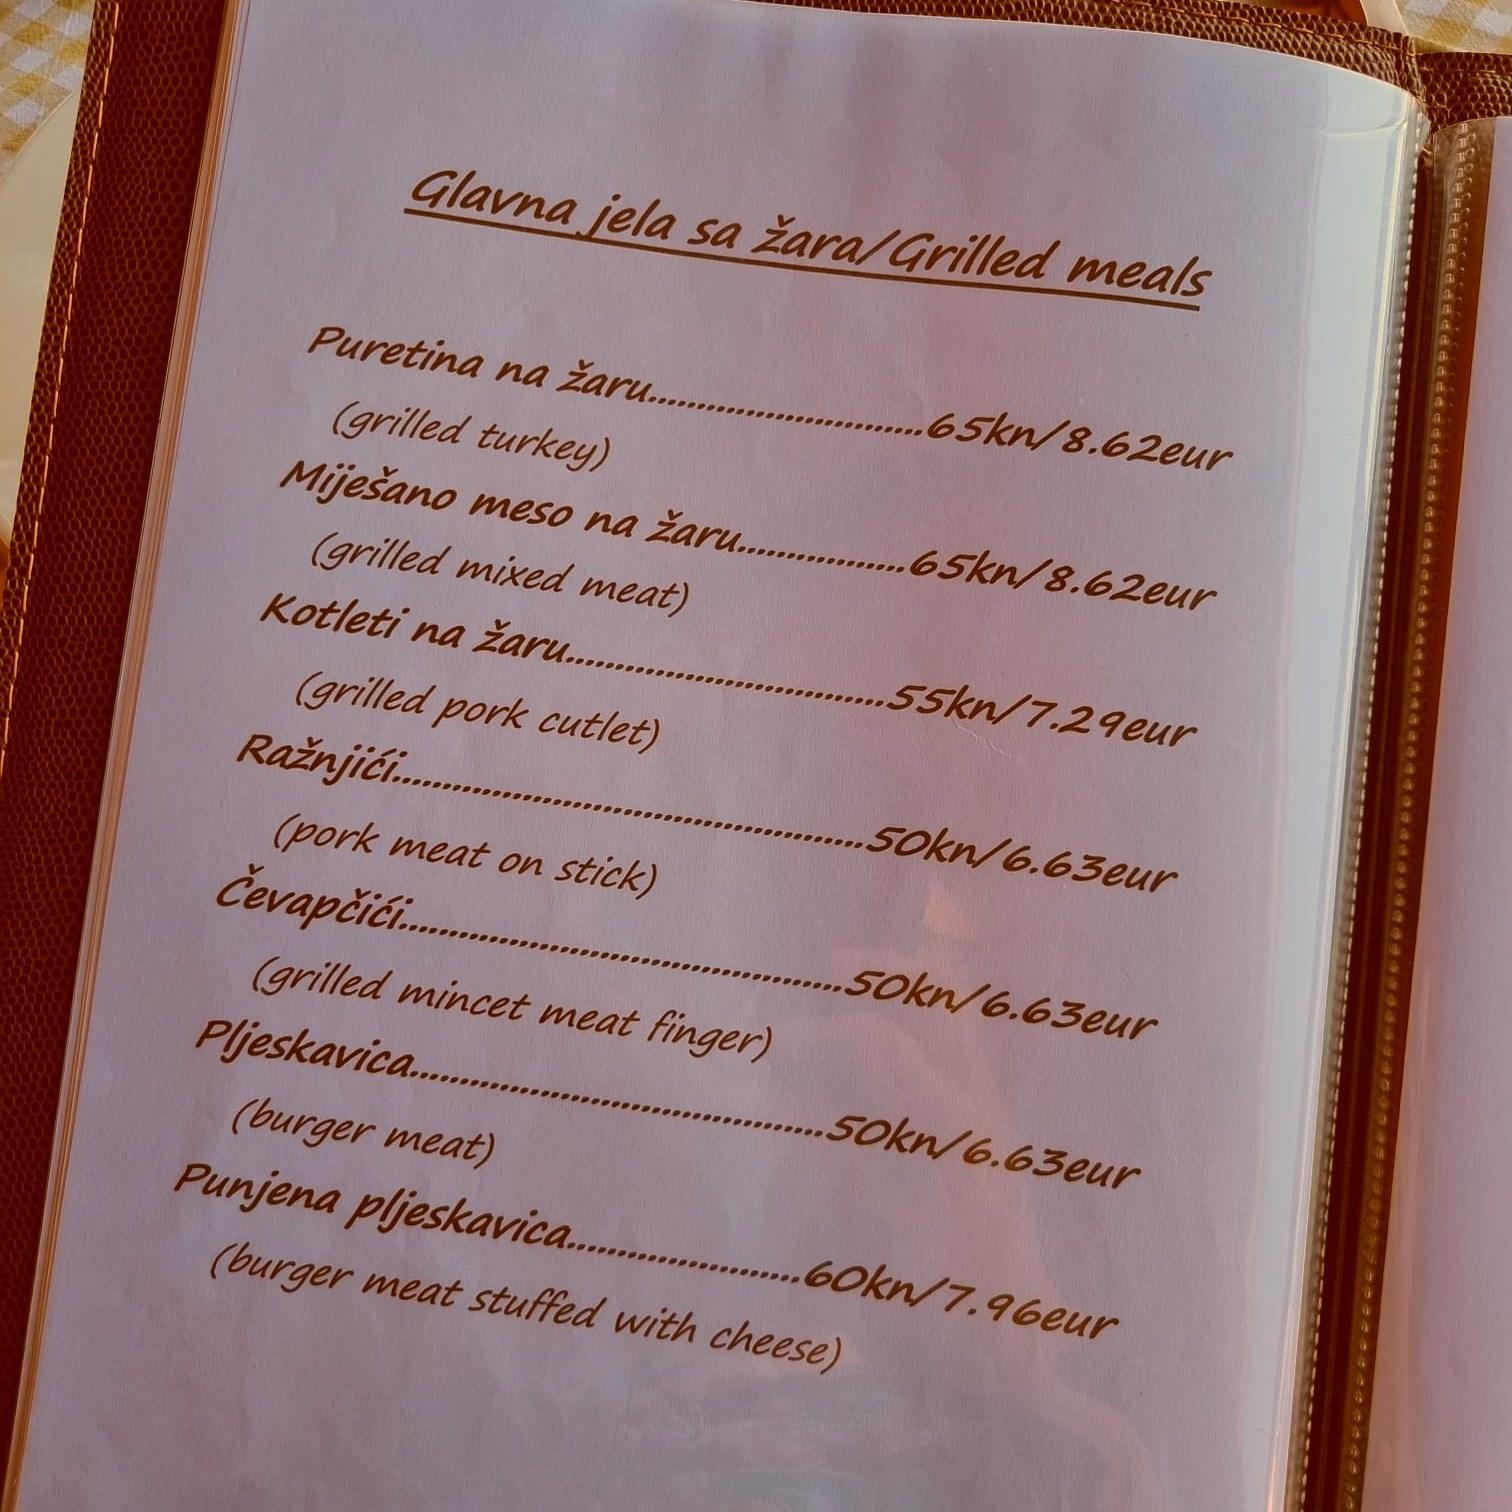 Glavna jela sa žara/Grilled meals
Puretina na žaru.............................65kn/8.62eur
(grilled turkey)
Miješano meso na žaru.................65kn/8.62eur
(grilled mixed meat)
Kotleti na žaru.................................55kn/7.29eur
(grilled pork cutlet)
Ražnjići.................................................50kn/6.63eur
(pork meat on stick)
Čevapčići...............................................50kn/6.63eur
(grilled mincet meat finger)
Pljeskavica............................................50kn/6.63eur
(burger meat)
Punjena pljeskavica........................60kn/7.96eur
(burger meat stuffed with cheese)